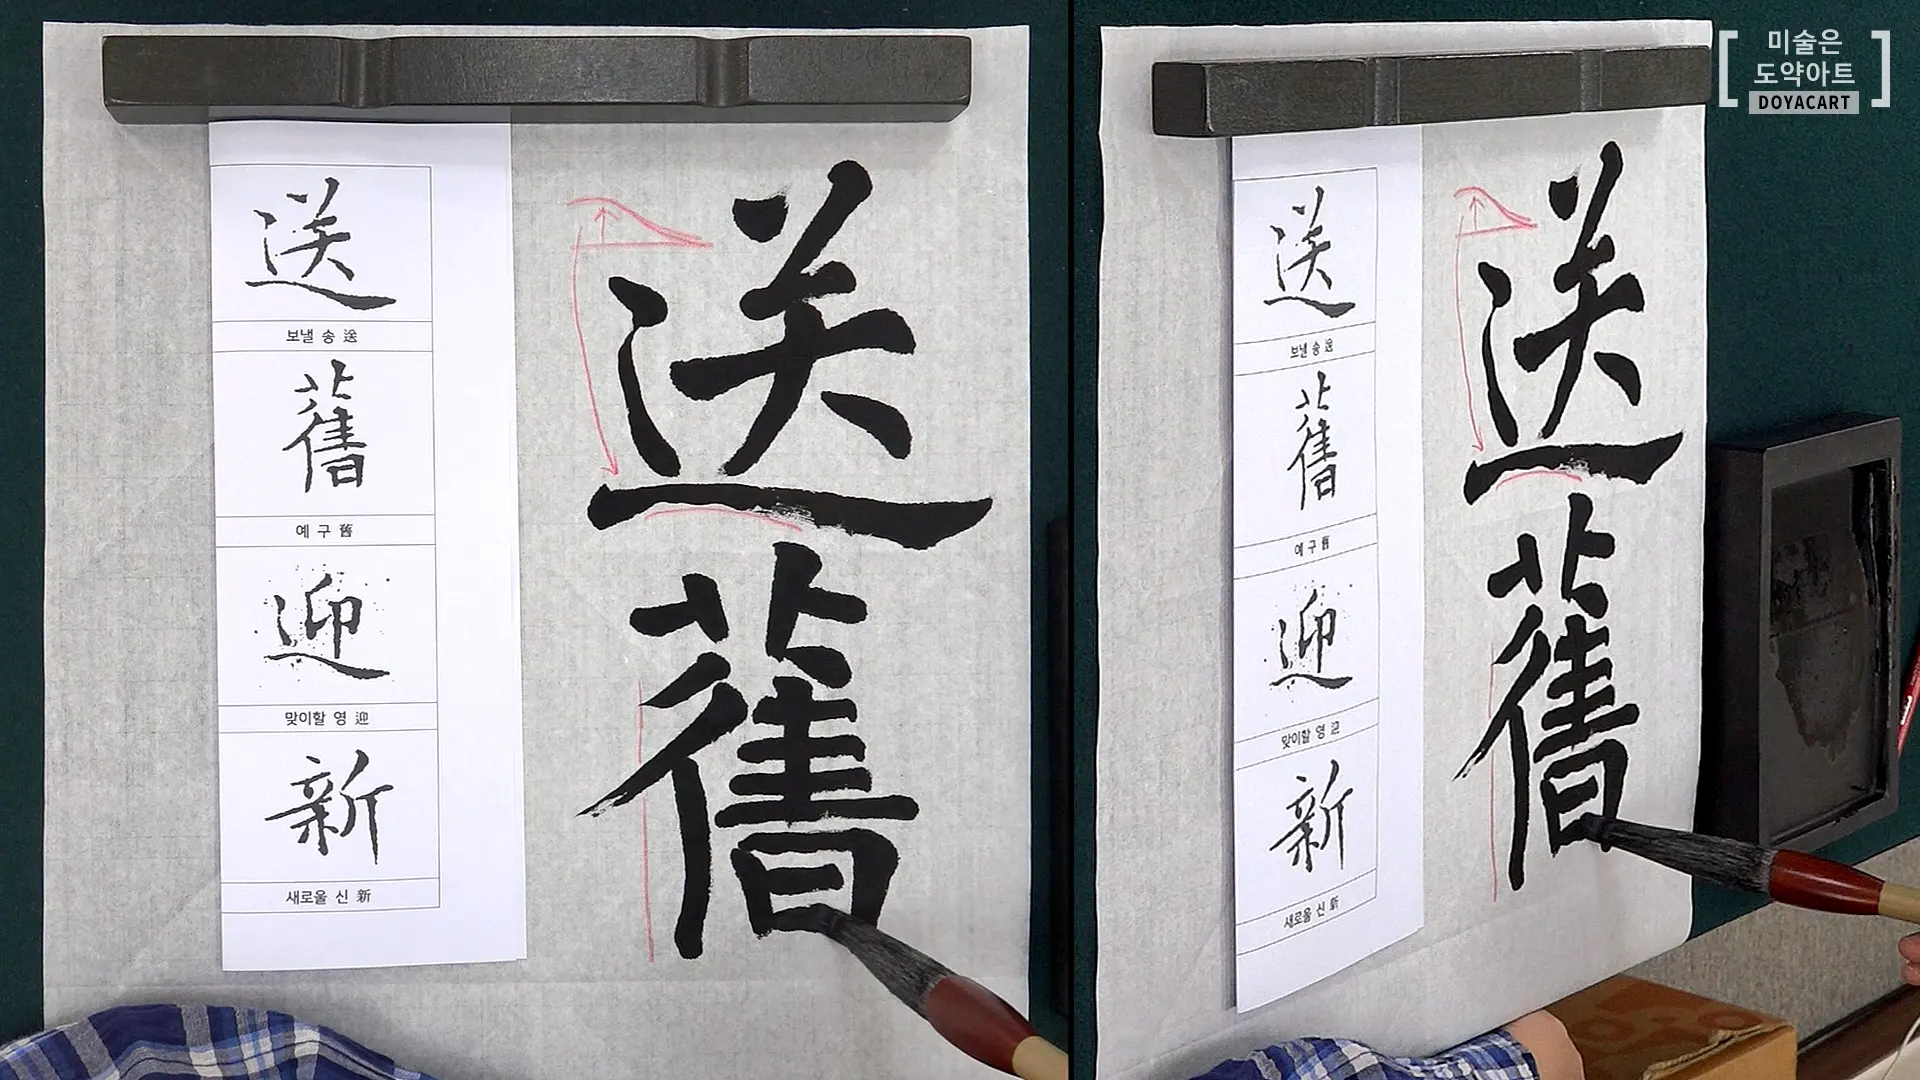 送
보낼 송 送
舊
예 구 舊
迎
맞이할 영 迎
新
새로울 신 新
送
舊
送
보낼 송 送
舊
예 구 舊
迎
맞이할 영 迎
新
새로울 신 新
送
舊
미술은
도약아트
DOYACART